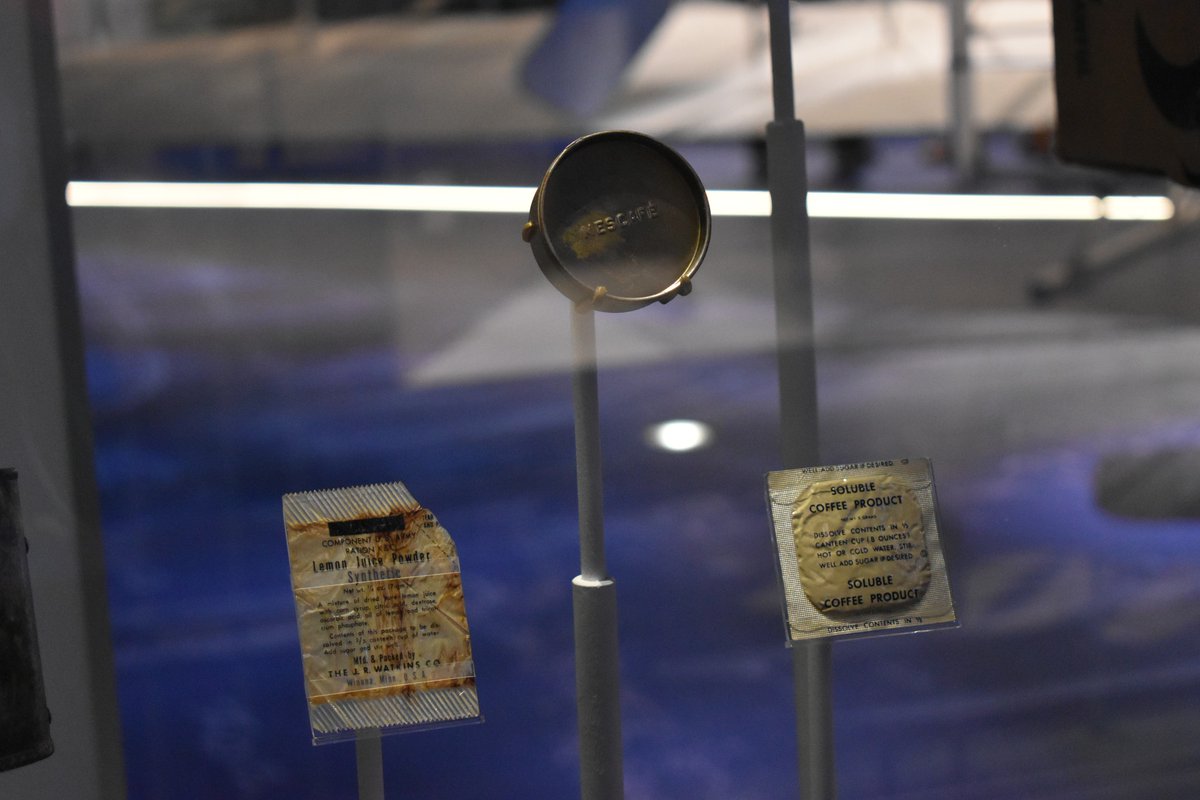 NESCAFÉ
COMPONENT U.S. ARMY
RATION
Lemon Juice Powder
Synthetic
Net wt.
A mixture of dried pure lemon juice
with corn syrup, dextrose
ascorbic acid, oil of
cium phosphate
Contents of this package to be dis-
solved in 2/3 canteen cup of water
Add sugar and stir
Mfd. & Packed by
THE J. R. WATKINS CO.
Winona, Minn. U.S.A.
WELL ADD SUGAR IF DESIRED
SOLUBLE
COFFEE PRODUCT
DISSOLVE CONTENTS IN ½
CANTEEN CUP (8 OUNCES)
HOT OR COLD WATER, STIR
WELL ADD SUGAR IF DESIRED
SOLUBLE
COFFEE PRODUCT
DISSOLVE CONTENTS IN ½